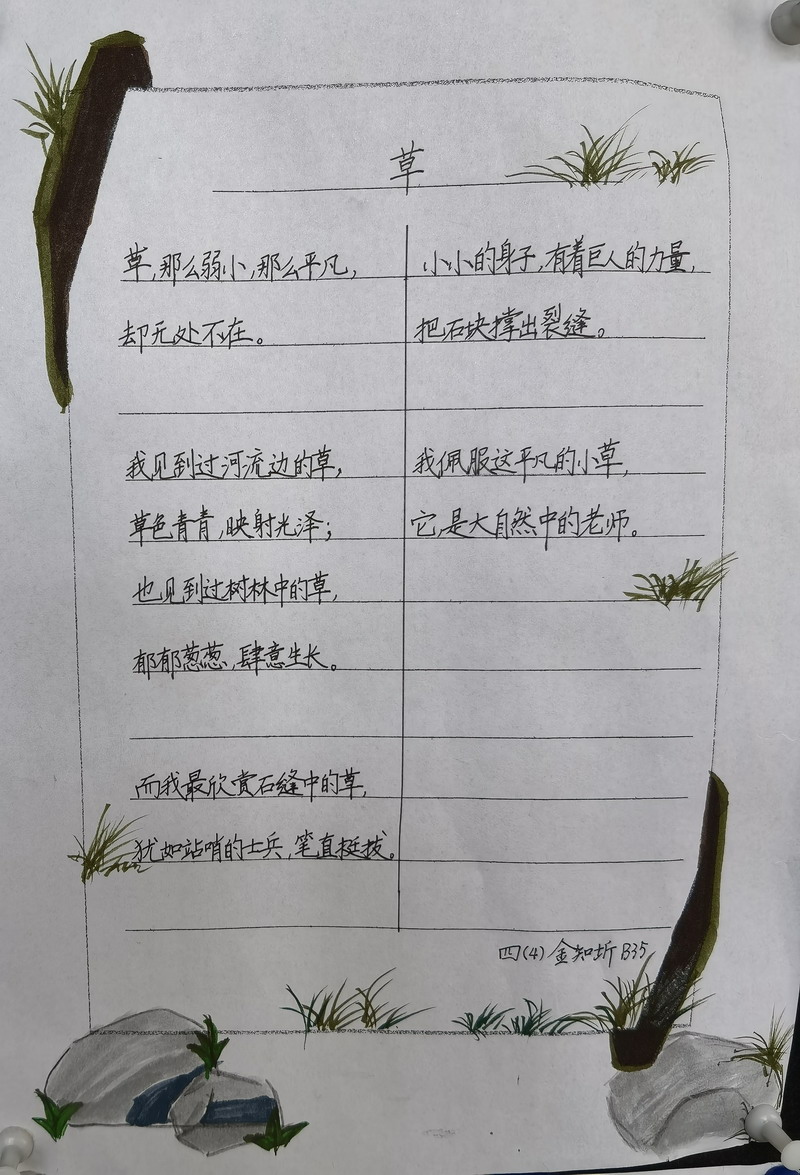 草
草,那么弱小,那么平凡,
却无处不在。
我见到过河流边的草,
草色青青,映射光泽;
也见到过树林中的草,
郁郁葱葱,肆意生长。
而我最欣赏石缝中的草,
犹如站哨的士兵,笔直挺拔。
小小的身子,有着巨人的力量,
把石块撑出裂缝。
我佩服这平凡的小草,
它是大自然中的老师。
四(4) 金知圻 B35